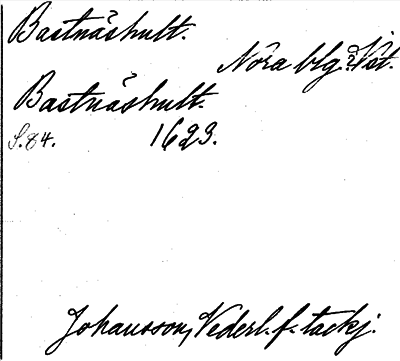 Bastnäshult.
Nora blg. Vst.
Bastnäshult.
S. 84. 1623.
Johansson, Vederl. f. tackj.